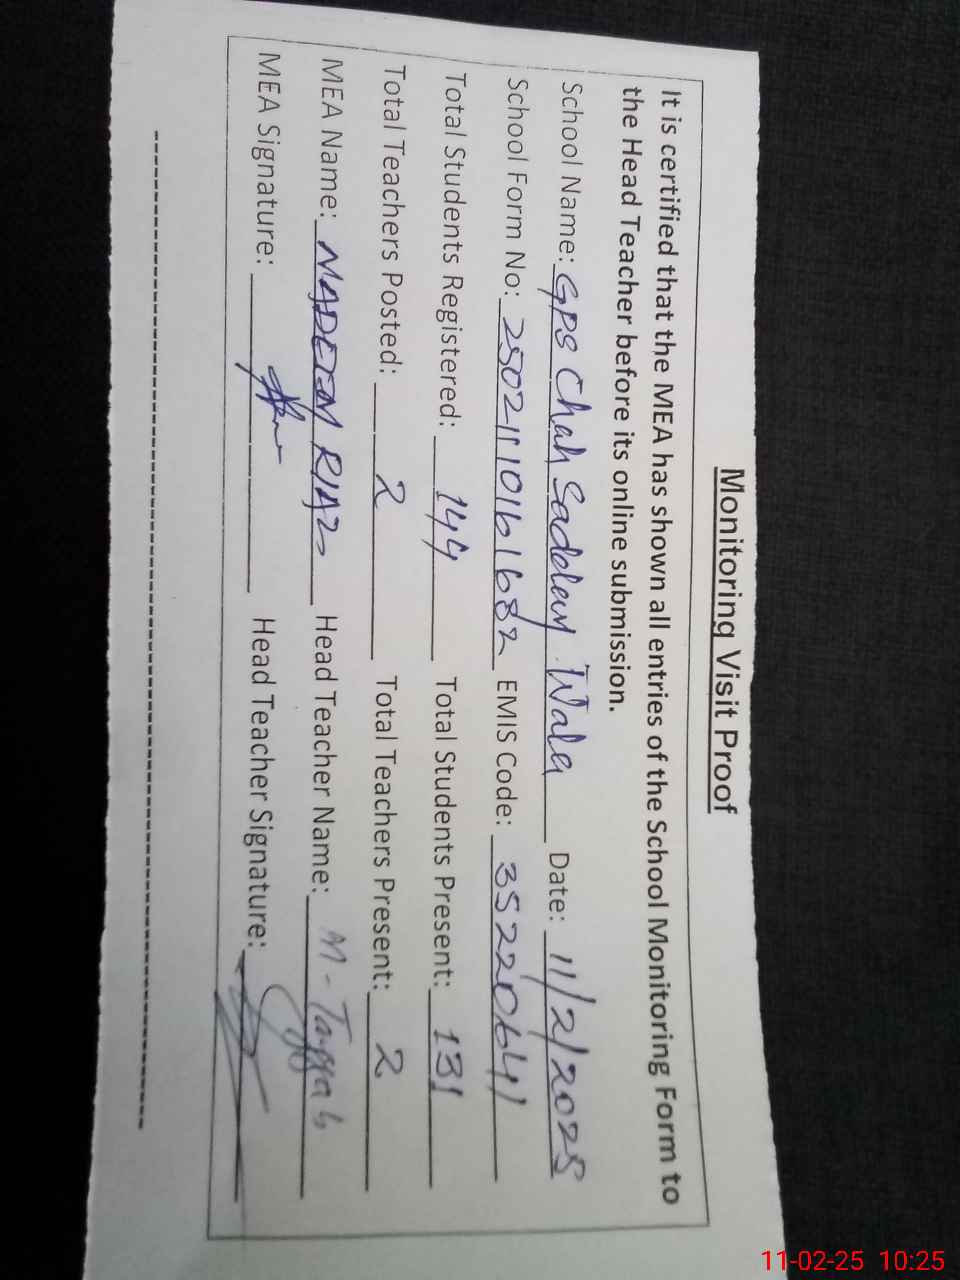 Monitoring Visit Proof
It is certified that the MEA has shown all entries of the School Monitoring Form to
the Head Teacher before its online submission.
School Name: GPS Chah Sadday Wala Date: 11/2/2025
School Form No: 2502111016 1682 EMIS Code: 35220641
Total Students Registered: 144 Total Students Present: 131
Total Teachers Posted: 2 Total Teachers Present: 2
MEA Name: NADEEM RIAZ Head Teacher Name: M - Tayyab
MEA Signature: Head Teacher Signature:
11-02-25 10:25